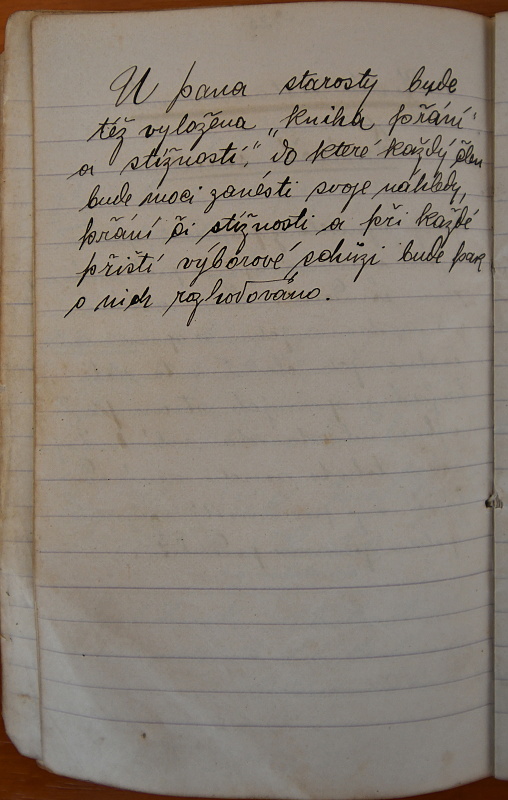 U pana starosty bude
též vyložena „kniha přání
a stížností," do které každý člen
bude moci zanésti svoje náhledy,
přání či stížnosti a při každé
příští výborové schůzi bude pak
o nich rozhodováno.